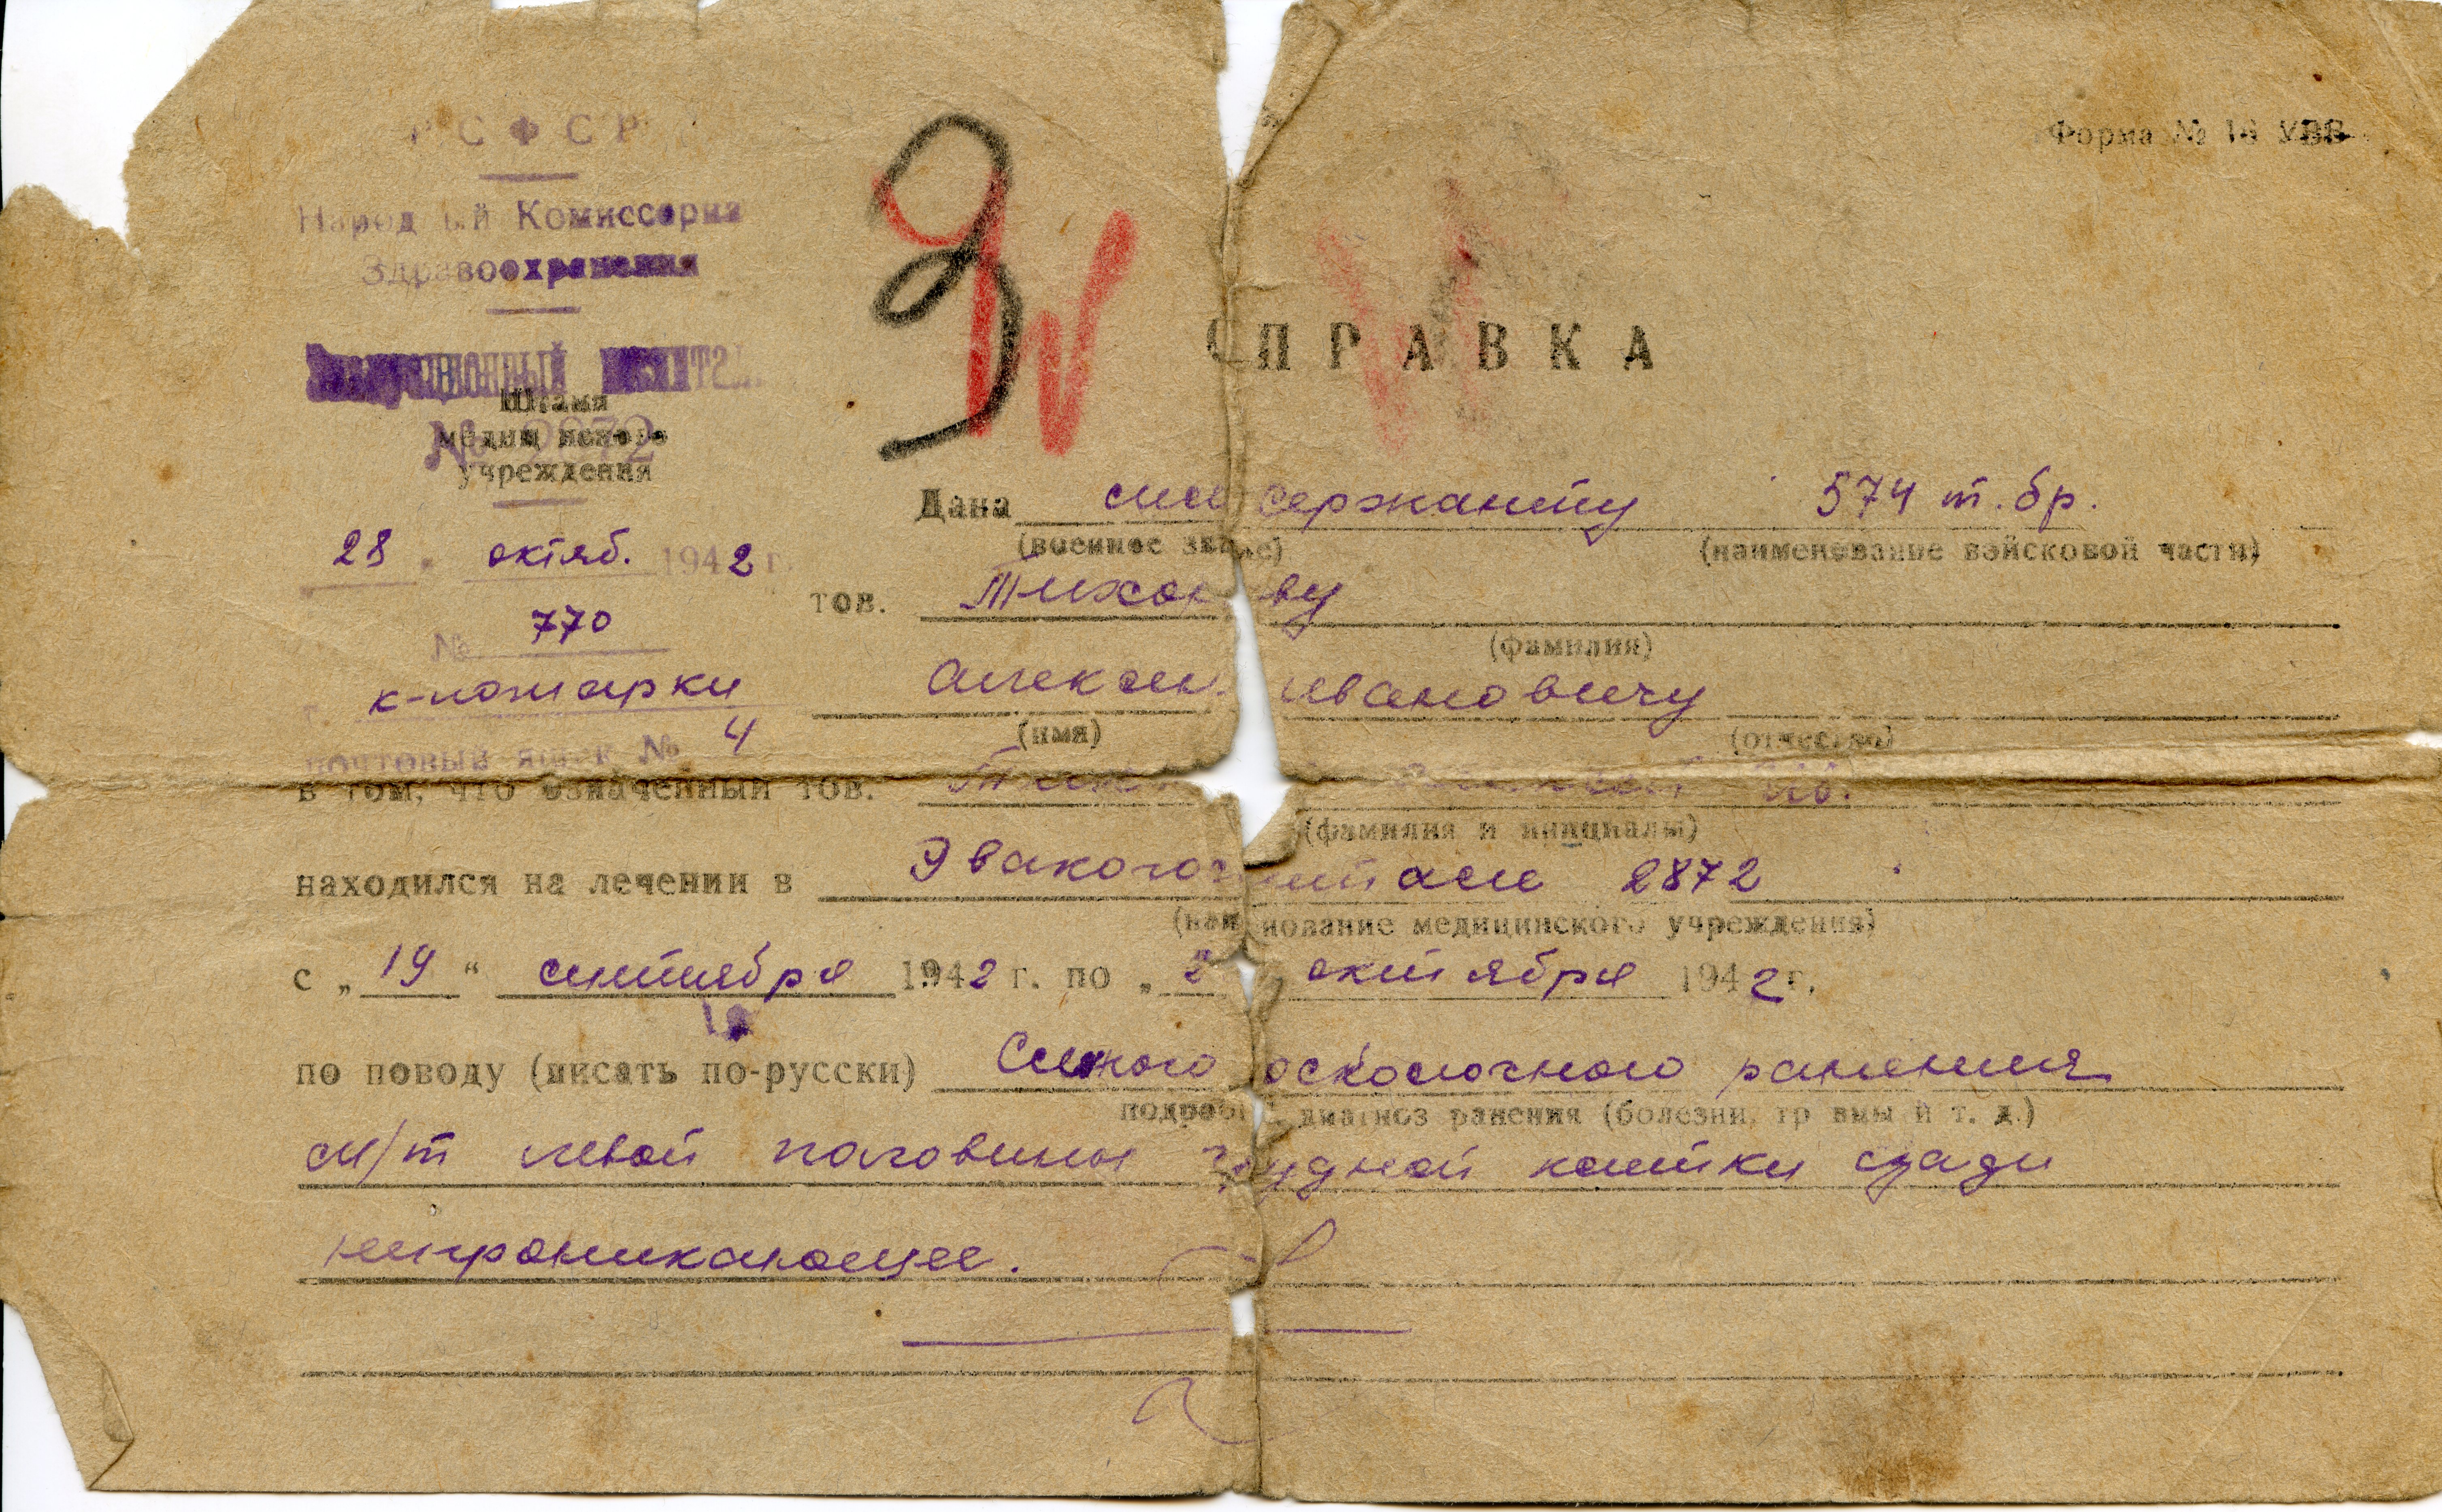 РСФСР
Форма № 16 УВВ
Народный Комиссариа
Здравоохранения
Эвакуационный госпитал
СПРАВКА
Штамп
медиц нского
№ 2872
учреждения
Дана мл. сержанту 574 т. бр.
(военное зв е) (наименование войсковой части)
28 . октяб. 1942 г.
тов. Тихон ву
№ 770
(фамилия)
Алексе Ивановичу
(имя) (отчество)
почтовый ящ к № 4
в том, что означенный тов. Ив.
(фамилия и инициалы)
находился на лечении в Эвакогоспитале 2872
(наи нование медицинского учреждения)
с „19“ сентября 1942 г. по „2 октября 1942 г.
по поводу (писать по-русски) осколочного ранения
подробн диагноз ранения (болезни, тр вмы и т. д.)
м/т левой половины грудной клетки сзади
непроникающее.